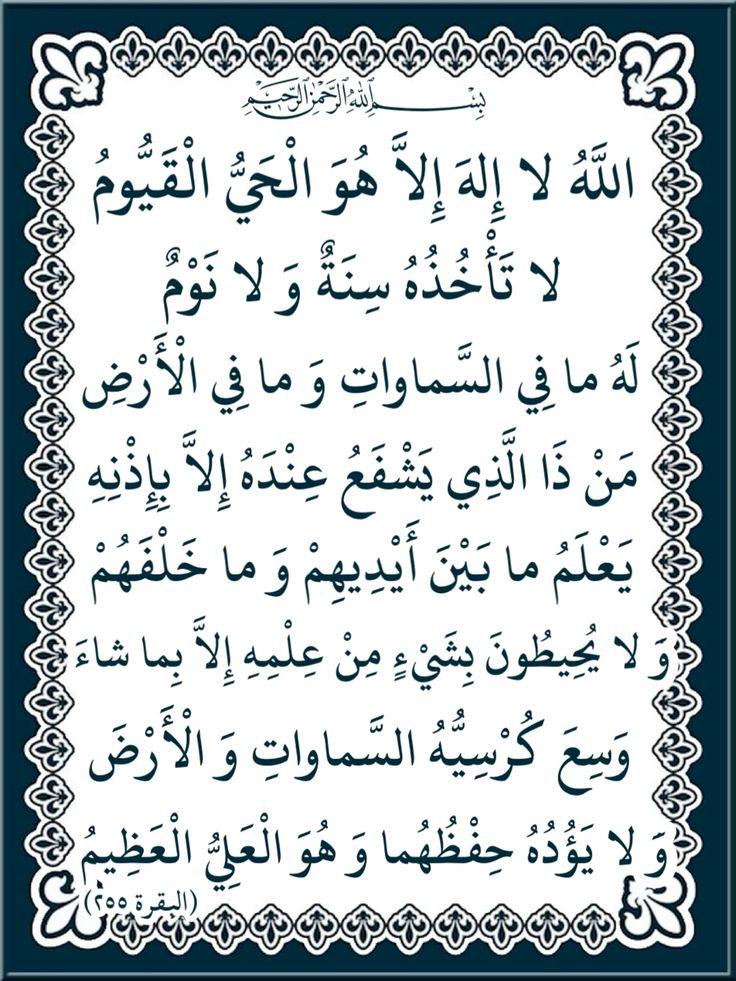 بِسْمِ اللهِ الرَّحْمٰنِ الرَّحِيْمِ
اللَّهُ لا إِلهَ إِلاَّ هُوَ الْحَيُّ الْقَيُّومُ
لا تَأْخُذُهُ سِنَةٌ وَ لا نَوْمٌ
لَهُ ما فِي السَّماواتِ وَ ما فِي الْأَرْضِ
مَنْ ذَا الَّذِي يَشْفَعُ عِنْدَهُ إِلاَّ بِإِذْنِهِ
يَعْلَمُ ما بَيْنَ أَيْدِيهِمْ وَ ما خَلْفَهُمْ
وَ لا يُحِيطُونَ بِشَيْءٍ مِنْ عِلْمِهِ إِلاَّ بِما شاءَ
وَسِعَ كُرْسِيُّهُ السَّماواتِ وَ الْأَرْضَ
وَ لا يَؤُدُهُ حِفْظُهُما وَ هُوَ الْعَلِيُّ الْعَظِيمُ
(البقرة ٢٥٥)